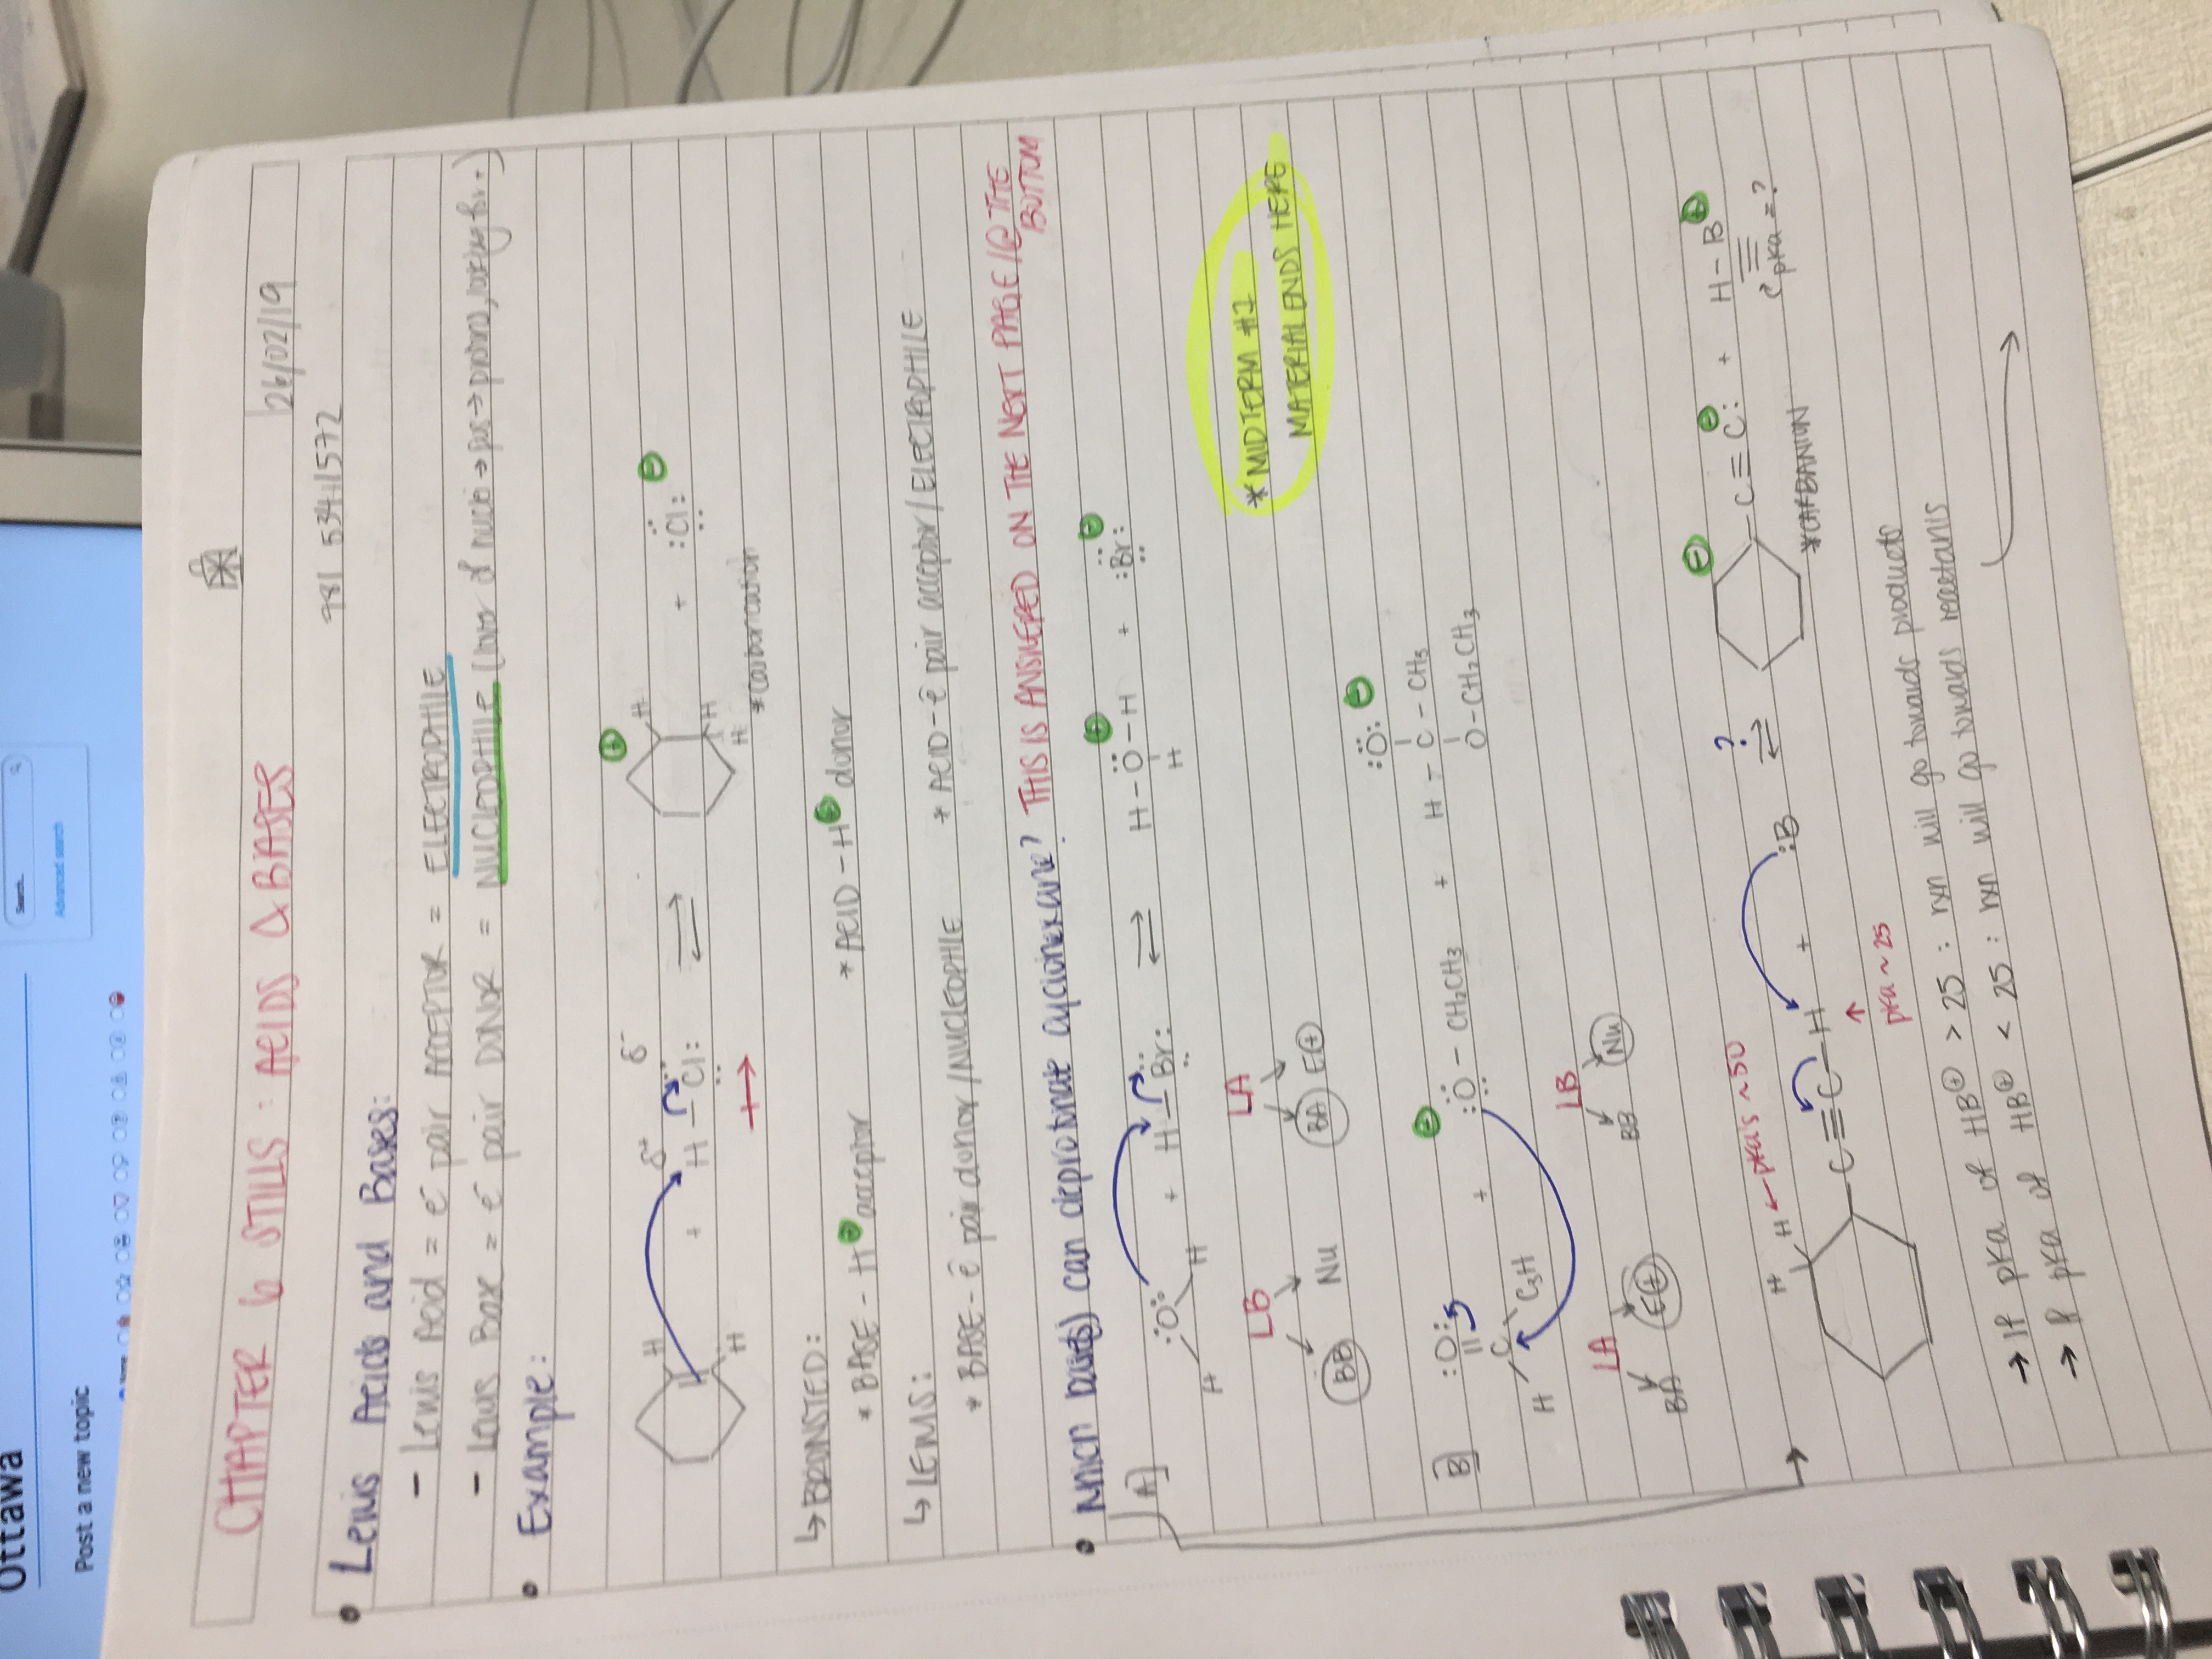 Ottawa
Search...
Advanced search
Post a new topic
CHAPTER 6 STILLS: ACIDS & BASES
26/02/19
981 534 1572
• Lewis Acids and Bases:
- Lewis Acid = e⁻ pair ACCEPTOR = ELECTROPHILE
- Lewis Base = e⁻ pair DONOR = NUCLEOPHILE (lover of nuclei → pos → protons,
• Example:
H H + δ+ H – Cl: δ- ⇌ ⊕ H H H + :Cl: ⊖
*carbocation
↳ BRONSTED:
* BASE - H⊕ acceptor * ACID - H⊕ donor
↳ LEWIS:
* BASE - e⁻ pair donor/NUCLEOPHILE * ACID - e⁻ pair acceptor/ELECTROPHILE
• Which base(s) can deprotonate cyclohexane? THIS IS ANSWERED ON THE NEXT PAGE/@ THE BOTTOM
A] H :O: H + H – Br: ⇌ H – O – H H ⊕ + :Br: ⊖
LB LA
BB Nu BA E⊕
*MIDTERM #1
MATERIAL ENDS HERE
B] :O: H C + :O – CH₂CH₃ ⊕ + H – C – CH₃ :O: ⊖ O – CH₂CH₃
LA LB
BA E⊕ BB Nu
H H ← pKa's ~ 50
C≡C–H + :B ⇌ ? ⊖ C≡C: ⊖ + H–B ⊕
↑ pKa ~ 25
*CARBANION
pKa = ?
→ If pKa of HB⊕ > 25 : rxn will go towards products
→ If pKa of HB⊕ < 25 : rxn will go towards reactants